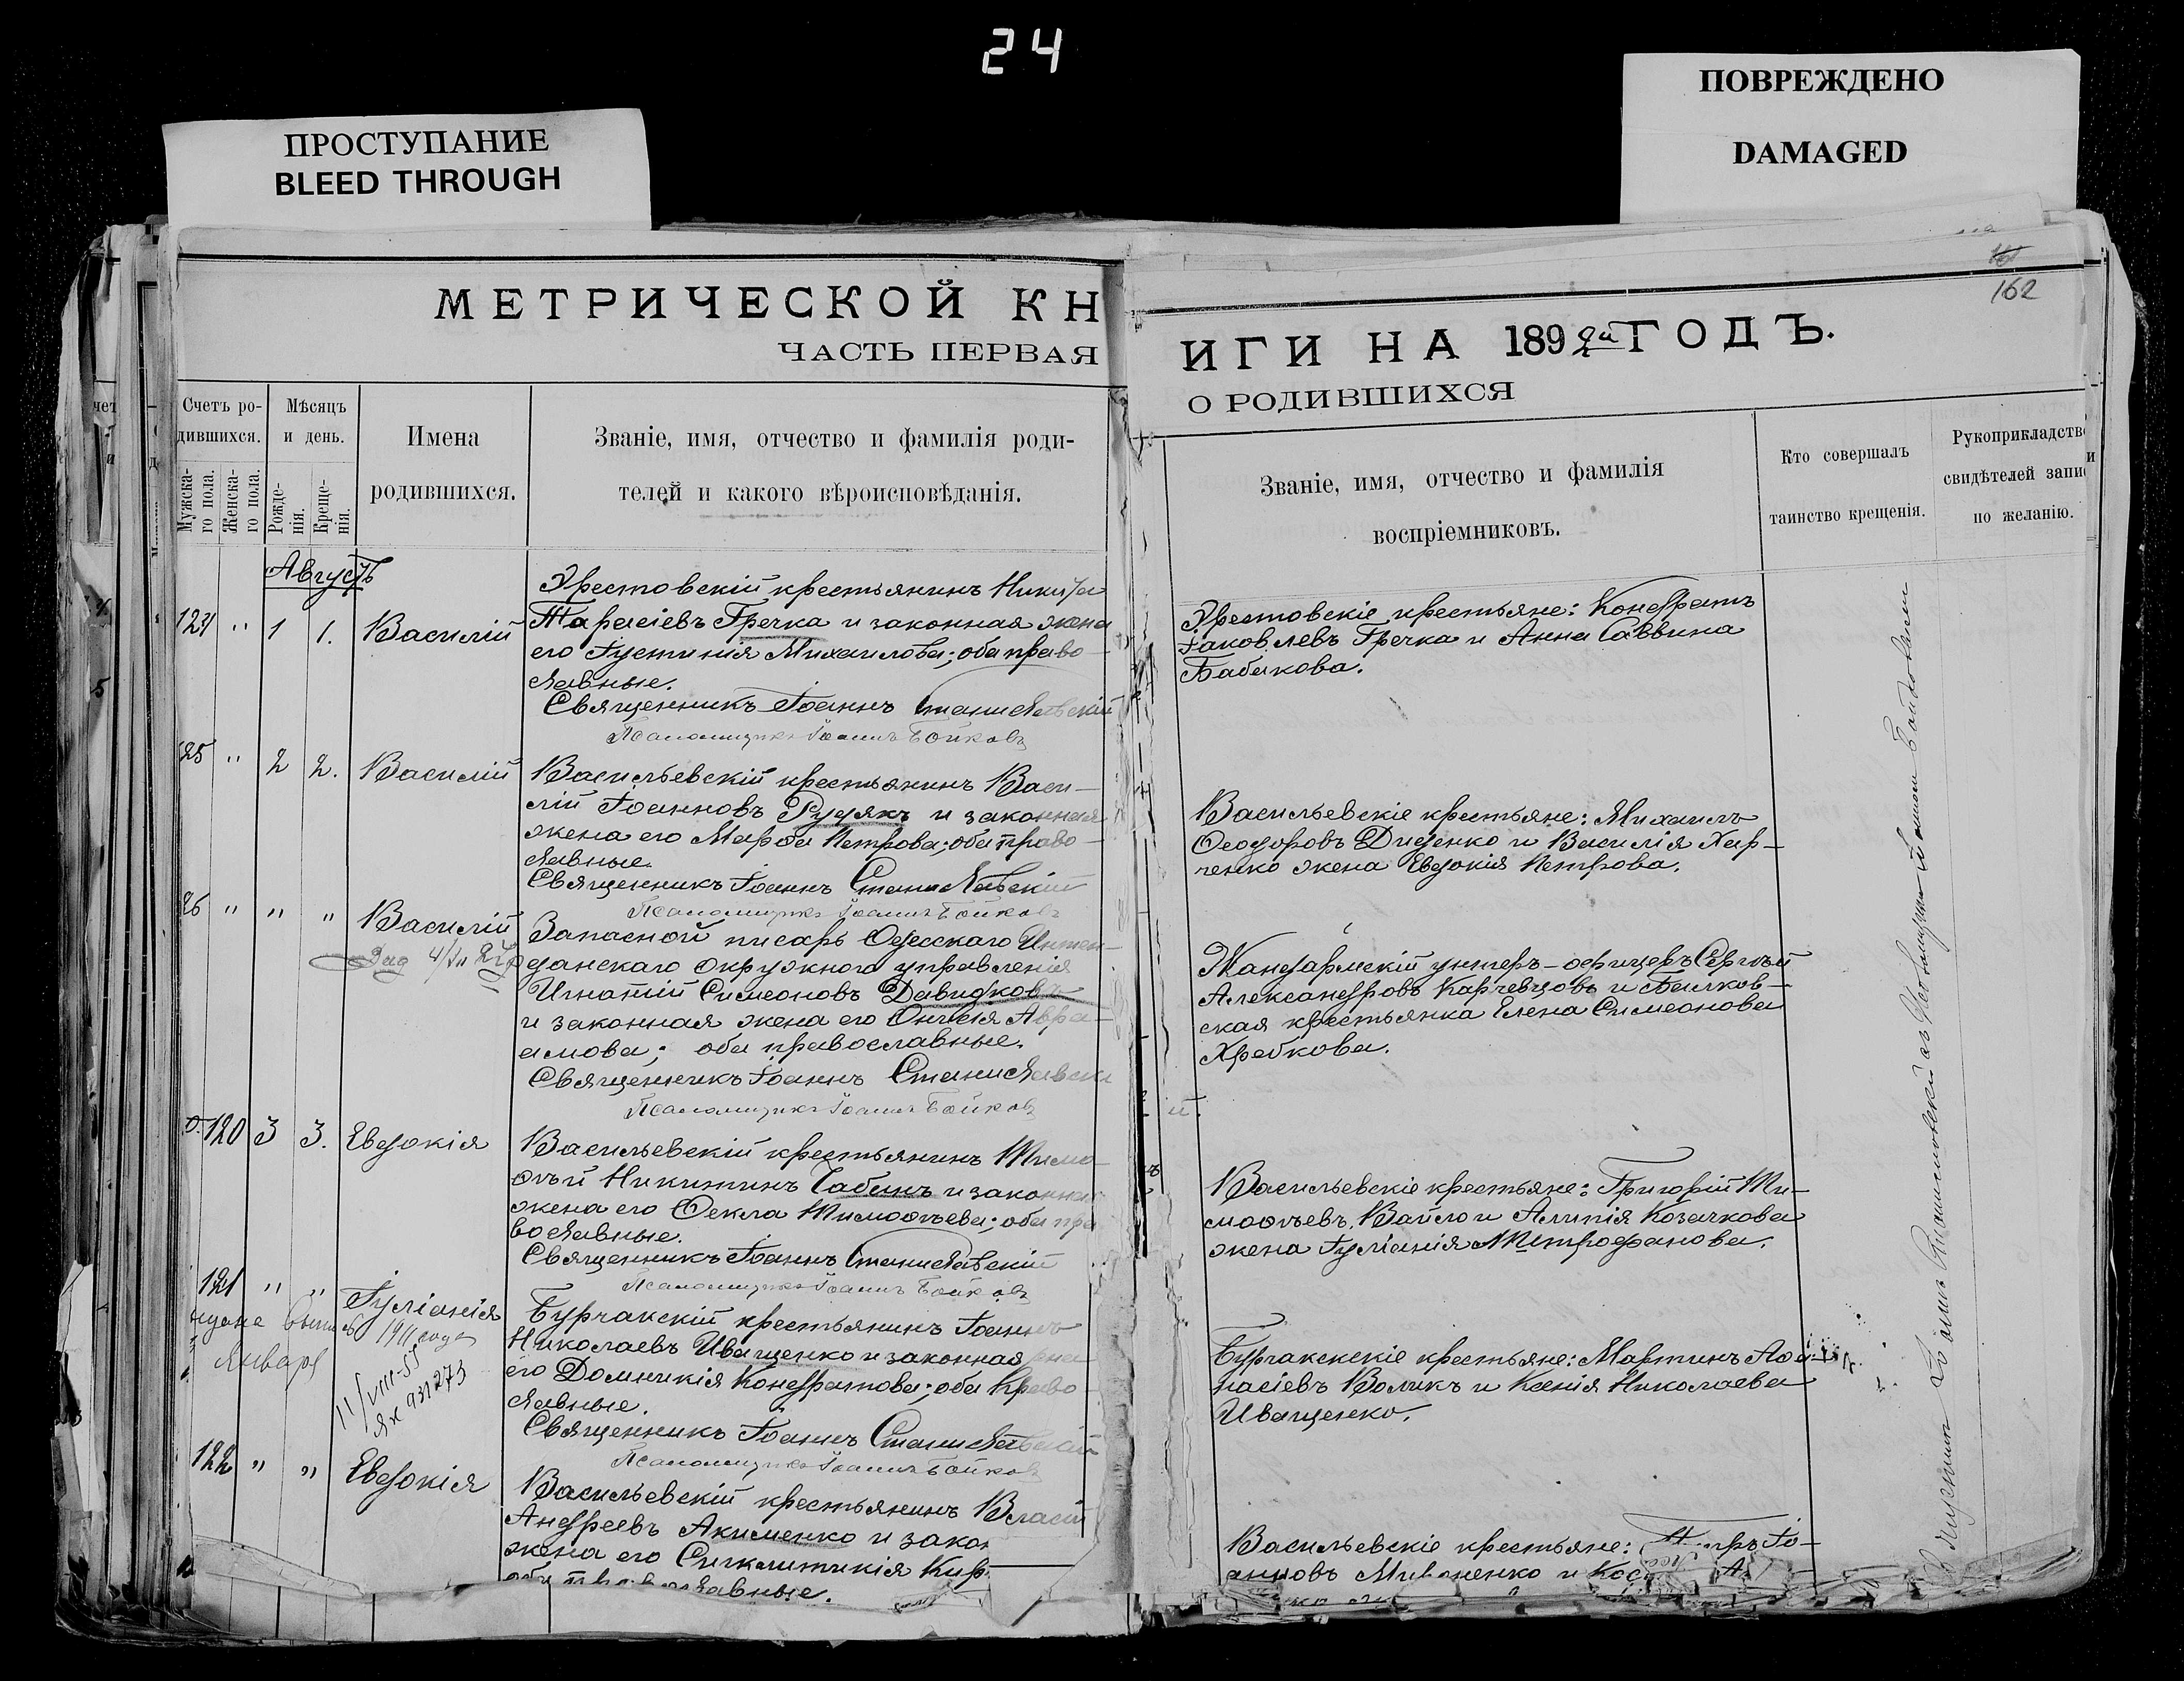 24
ПРОСТУПАНИЕ
BLEED THROUGH
ПОВРЕЖДЕНО
DAMAGED
162
МЕТРИЧЕСКОЙ КН
ЧАСТЬ ПЕРВАЯ
ИГИ НА 1892й ГОДЪ.
О РОДИВШИХСЯ
Счетъ ро-
дившихся.
Мужска-
го пола.
Женска-
го пола.
Мѣсяцъ
и день.
Рожде-
нія.
Креще-
нія.
Имена
родившихся.
Званіе, имя, отчество и фамилія роди-
телей и какого вѣроисповѣданія.
Званіе, имя, отчество и фамилія
воспріемниковъ.
Кто совершалъ
таинство крещенія.
Рукоприкладство
свидѣтелей запи
по желанію.
Августъ
124 " 1 1. Василій
Эрестовскій крестьянинъ Никита
Тарасіевъ Гречка и законная жена
его Іустинія Михаилова; оба право-
славные.
Священникъ Іоаннъ Станиславскій
Псаломщикъ Іоаннъ Бойковъ
Эрестовскіе крестьяне: Кондратъ
Іаковлевъ Гречка и Анна Саввина
Бабакова.
125 " 2 2. Василій
Васильевскій крестьянинъ Васи-
лій Іоанновъ Рудякъ и законная
жена его Марѳа Петрова; оба право-
славные.
Священникъ Іоаннъ Станиславскій
Псаломщикъ Іоаннъ Бойковъ
Васильевскіе крестьяне: Михаилъ
Ѳеодоровъ Диденко и Василія Хар-
ченко жена Евдокія Петрова.
126 " " " Василій
Запасной писарь Одесскаго Интен-
данскаго окружного управленія
Игнатій Симеоновъ Давидковъ
и законная жена его Онисія Авра-
амова; оба православные.
Священникъ Іоаннъ Станиславскій
Псаломщикъ Іоаннъ Бойковъ
Жандармскій унтеръ-офицеръ Сергѣй
Александровъ Карчевцовъ и Белков-
ская крестьянка Елена Симеонова
Храбкова.
120 3 3. Евдокія
Васильевскій крестьянинъ Тимо-
ѳѣй Никитинъ Чабанъ и законная
жена его Ѳекла Тимоѳѣева; оба пра
вославные.
Священникъ Іоаннъ Станиславскій
Псаломщикъ Іоаннъ Бойковъ
Васильевскіе крестьяне: Григорій Ти-
моѳѣевъ Вайло и Алипія Козачкова
жена Іуліанія Митрофанова.
121 " " Іуліанія
1911 года
Января
11/VIII-55
ЯХ 931273
Бурчакскій крестьянинъ Іоаннъ
Николаевъ Иващенко и законная жена
его Домникія Кондратова; оба право-
славные.
Священникъ Іоаннъ Станиславскій
Псаломщикъ Іоаннъ Бойковъ
Бурчакскскіе крестьяне: Мартинъ Аѳа-
насіевъ Воликъ и Ксенія Николаева
Иващенко.
122 " " Евдокія
Васильевскій крестьянинъ Власій
Андреевъ Акименко и закон
жена его Синклитикія Кир
оба православные.
Васильевскіе крестьяне: Іо-
анновъ Мироненко и